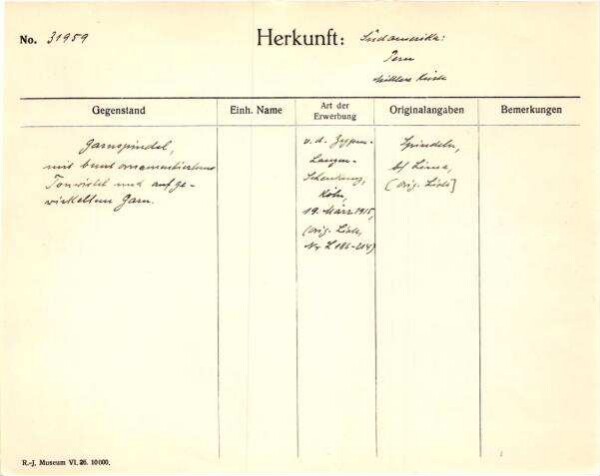 No. 31959
Herkunft: Südamerika:
Peru
mittlere Küste
Gegenstand
Einh. Name
Art der Erwerbung
Originalangaben
Bemerkungen
Garnspindel,
mit bunt ornamentiertem
Tonwirtel und aufge-
wickeltem Garn.
v. d. Zypen-
Langen-
Schenkung,
Köln,
19. März 1915,
(Orig. Liste,
Nr.
Spindeln,
bf Lima,
(Orig. Liste]
R.-J. Museum VI. 26. 10000.